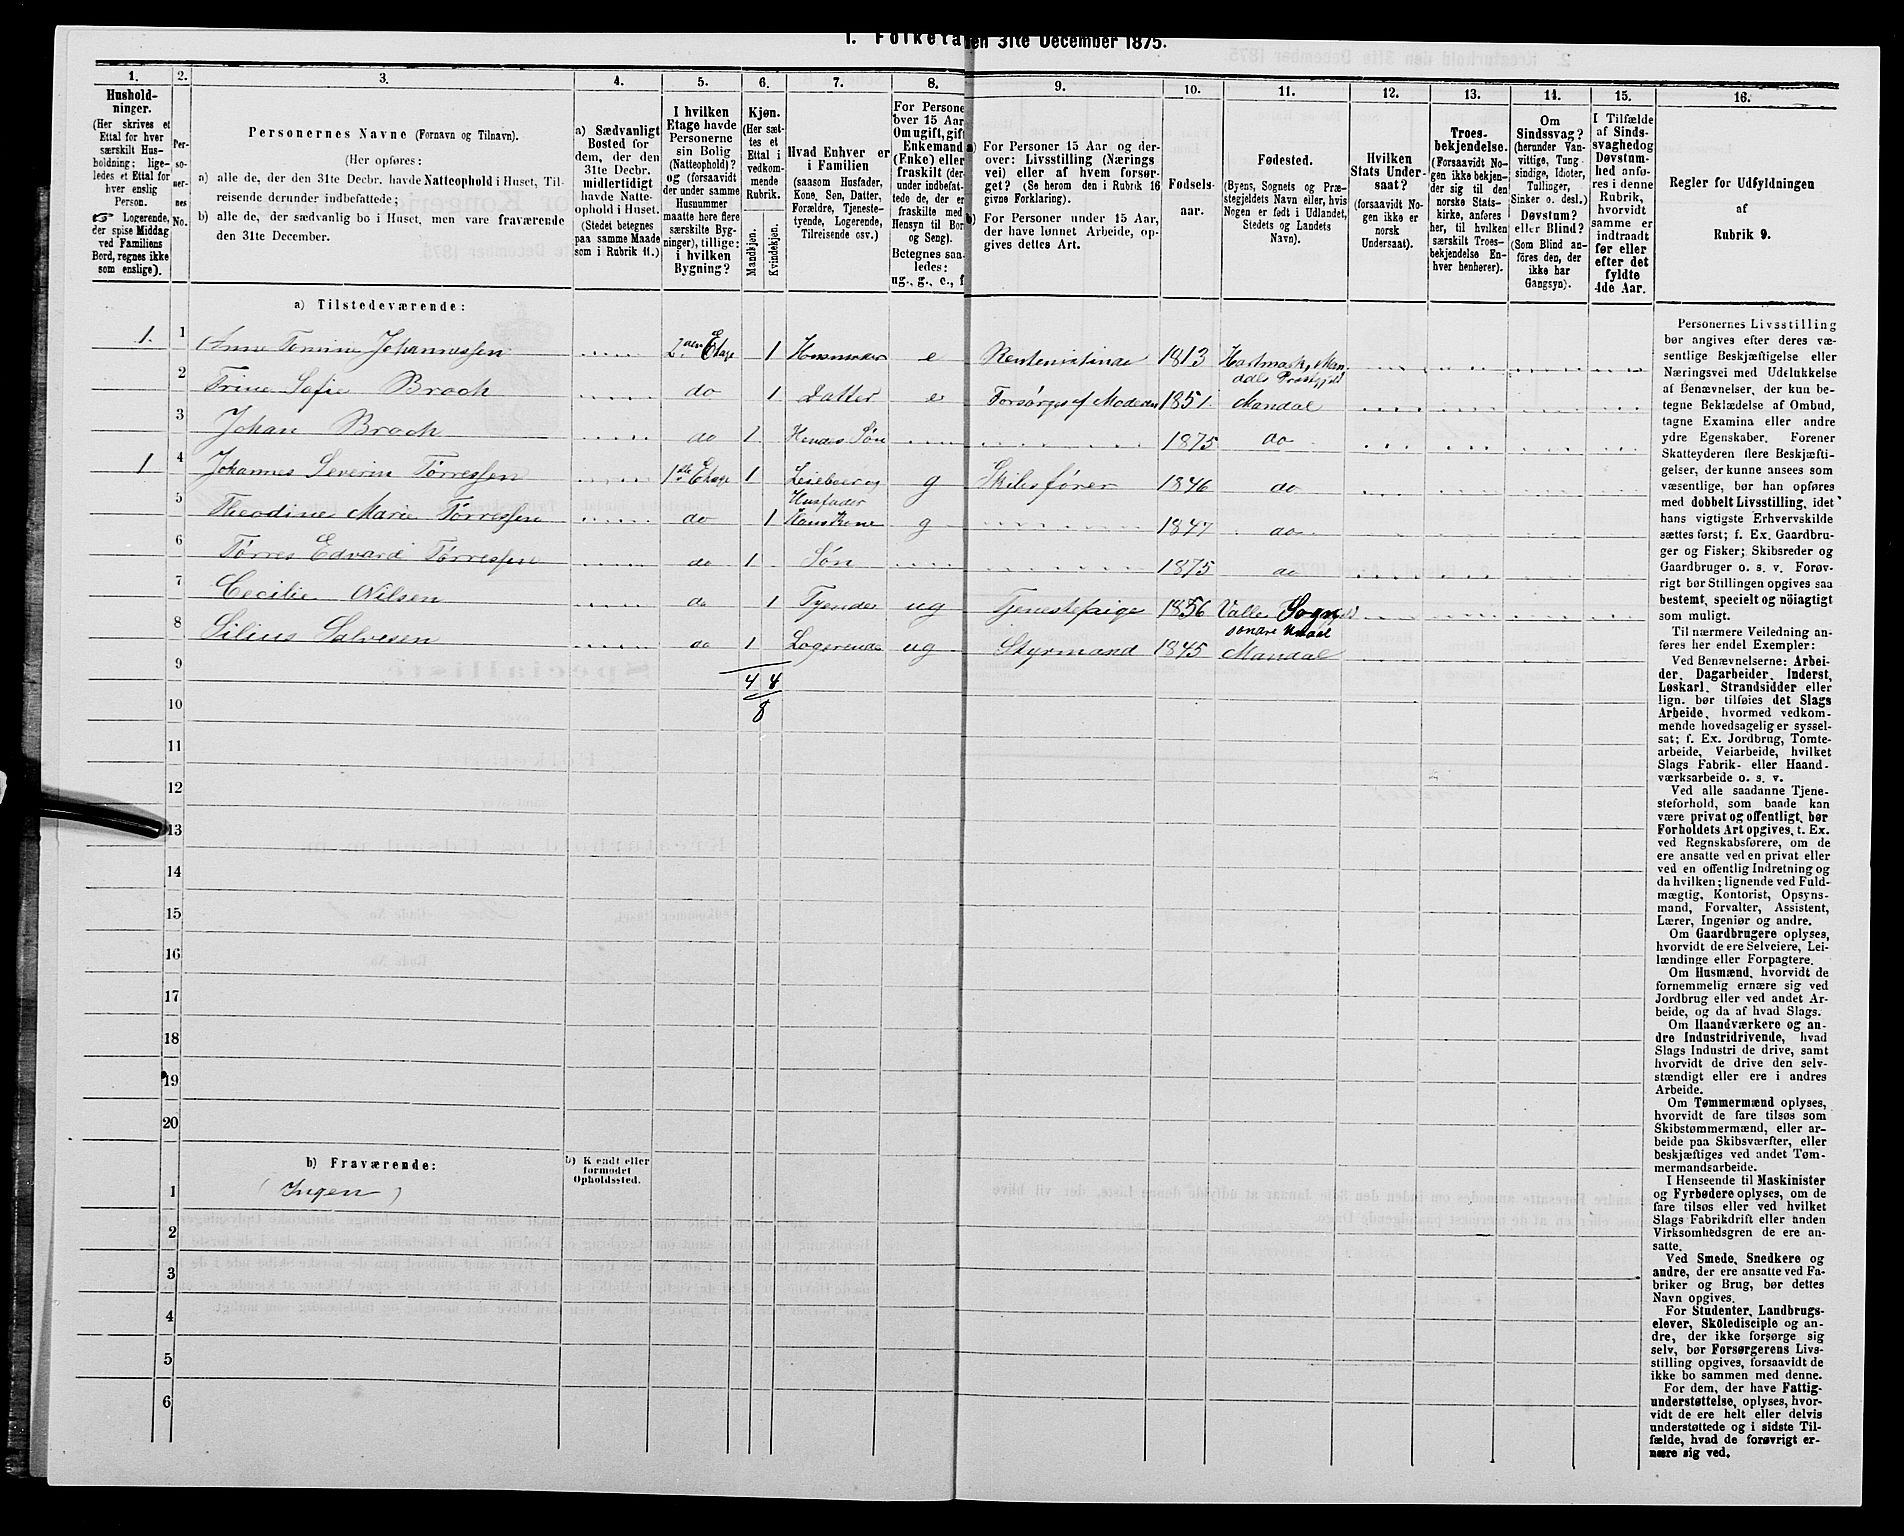 1. Folketal den 31te December 1875.
1. 2. 3. 4. 5. 6. 7. 8. 9. 10. 11. 12. 13. 14. 15. 16.
Hushold-
ninger.
(Her skrives et
Ettal for hver
særskilt Hus-
holdning; lige-
ledes et Ettal for
hver enslig
Person.
☞ Logerende,
der spise Middag
ved Familiens
Bord, regnes ikke
som enslige).
Per-
so-
ner-
nes
No.
Personernes Navne (Fornavn og Tilnavn).
(Her opføres:
a) alle de, der den 31te Decbr. havde Natteophold i Huset, Til-
reisende derunder indbefattede;
b) alle de, der sædvanlig bo i Huset, men vare fraværende
den 31te December.
a) Sædvanligt
Bosted for
dem, der den
31te Decbr.
midlertidigt
havde Natte-
ophold i Huset.
(Stedet betegnes
paa samme Maade
som i Rubrik 11.)
I hvilken
Etage havde
Personerne
sin Bolig
(Natteophold)?
og (forsaavidt
der under samme
Husnummer
maatte høre flere
særskilte Byg-
ninger), tillige:
i hvilken
Bygning?
Kjøn.
(Her sæt-
tes et
Ettal i
vedkom-
mende
Rubrik.
Mandkjøn.
Kvindekjøn.
Hvad Enhver er
i Familien
(saasom Husfader,
Kone, Søn, Datter,
Forældre, Tjeneste-
tyende, Logerende,
Tilreisende osv.)
For Persone
over 15 Aar
Om ugift, gift
Enkemand
(Enke) eller
fraskilt (der-
under indbefat-
tede de, der er
fraskilte med
Hensyn til Bor
og Seng).
Betegnes saa-
ledes:
ug., g., e., f
a) For Personer 15 Aar og der-
over: Livsstilling (Nærings
vei) eller af hvem forsør-
get? (Se herom den i Rubrik 16
givne Forklaring).
b) For Personer under 15 Aar,
der have lønnet Arbeide, op-
gives dettes Art.
Fødsels-
aar.
Fødested.
(Byens, Sognets og Præ-
stegjeldets Navn eller, hvis
Nogen er født i Udlandet,
Stedets og Landets
Navn).
Hvilken
Stats Under-
saat?
(forsaavidt No-
gen ikke er
norsk
Undersaat).
Troes-
bekjendelse.
(Forsaavidt No-
gen ikke bekjen-
der sig til den
norske Stats-
kirke, anføres
her, til hvilken
særskilt Troes-
bekjendelse En-
hver henhører).
Om
Sindssvag?
(herunder Van-
vittige, Tung
sindige, Idioter,
Tullinger,
Sinker o. desl.)
Døvstum?
eller Blind?
(Som Blind an-
føres den, der
ikke har
Gangsyn).
I Tilfælde
af Sinds-
svaghed og
Døvstum-
hed anfø-
res i denne
Rubrik,
hvorvidt
samme er
indtraadt
før eller
efter det
fyldte
4de Aar.
Regler for Udfyldningen
af
Rubrik 9.
a) Tilstedeværende:
1. 1 Anne Tomine Johannessen 2den Etage 1 Husmoder e Renteneristinde 1813 Hartmark, Man-
dals Prestgjeld
2 Trine Sofie Broch do 1 Datter e Forsørges af Moderen 1851 Mandal
3 Johan Broch do 1 Hendes Søn 1875 do
1 4 Johannes Severin Tørressen 1ste Etage 1 Leieboer og
Husfader g Skibsfører 1846 do
5 Theodine Marie Tørressen do 1 Hans Kone g 1847 do
6 Tørres Edvard Tørressen do 1 Søn 1875 do
7 Cecilie Nilsen do 1 Tyende ug Tjenestepige 1856 Valle Sogn
søndre Undal
8 Silius Salvesen do 1 Logerende ug Styrmand 1845 Mandal
9
4 4
10
8
11
12
13
14
15
16
17
18
19
20
b) Fraværende:
b) Kjendt eller
formodet
Opholdssted.
1 (Ingen)
2
3
4
5
6
Personernes Livsstilling
bør angives efter deres væ-
sentlige Beskjæftigelse eller
Næringsvei med Udelukkelse
af Benævnelser, der kun be-
tegne Beklædelse af Ombud,
tagne Examina eller andre
ydre Egenskaber. Forener
Skatteyderen flere Beskjæfti-
gelser, der kunne ansees som
væsentlige, bør han opføres
med dobbelt Livsstilling, idet
hans vigtigste Erhvervskilde
sættes først; f. Ex. Gaardbru-
ger og Fisker; Skibsreder og
Gaardbruger o. s. v. Forøv-
rigt bør Stillingen opgives saa
bestemt, specielt og nöiagtigt
som muligt.
Til nærmere Veiledning an-
føres her endel Exempler:
Ved Benævnelserne: Arbei-
der, Dagarbeider, Inderst,
Løskarl, Strandsidder eller
lign. bør tilføies det Slags
Arbeide, hvormed vedkom-
mende hovedsagelig er syssel-
sat; f. Ex. Jordbrug, Tomte-
arbeide, Veiarbeide, hvilket
Slags Fabrik- eller Haand-
værksarbeide o. s. v.
Ved alle saadanne Tjene-
steforhold, som baade kan
være privat og offentligt, bør
Forholdets Art opgives, t. Ex.
ved Regnskabsførere, om de
ere ansatte ved en privat eller
ved en offentlig Indretning og
da hvilken; lignende ved Fuld-
mægtig, Kontorist, Opsyns-
mand, Forvalter, Assistent,
Lærer, Ingeniør og andre.
Om Gaardbrugere oplyses,
hvorvidt de ere Selveiere, Lei-
lændinge eller Forpagtere.
Om Husmænd, hvorvidt de
fornemmelig ernære sig ved
Jordbrug eller ved andet Ar-
beide, og da af hvad Slags.
Om Haandværkere og an-
dre Industridrivende, hvad
Slags Industri de drive, samt
hvorvidt de drive den selv-
stændigt eller ere i andres
Arbeide.
Om Tømmermænd oplyses,
hvorvidt de fare tilsøs som
Skibstømmermænd, eller ar-
beide paa Skibsværfter, eller
beskjæftiges ved andet Tøm-
mermandsarbeide.
I Henseende til Maskinister
og Fyrbødere oplyses, om de
fare tilsøs eller ved hvilket
Slags Fabrikdrift eller anden
Virksomhedsgren de ere an-
satte.
Ved Smede, Snedkere og
andre, der ere ansatte ved Fa-
briker og Brug, bør dettes
Navn opgives.
For Studenter, Landbrugs-
elever, Skoledisciple og an-
dre, der ikke forsørge sig
selv, bør Forsørgerens Livs-
stilling opgives, forsaavidt de
ikke bo sammen med denne.
For dem, der have Fattig-
understøttelse, oplyses, hvor-
vidt de ere helt eller delvis
understøttede og i sidste Til-
fælde, hvad de forøvrigt er-
nære sig ved.